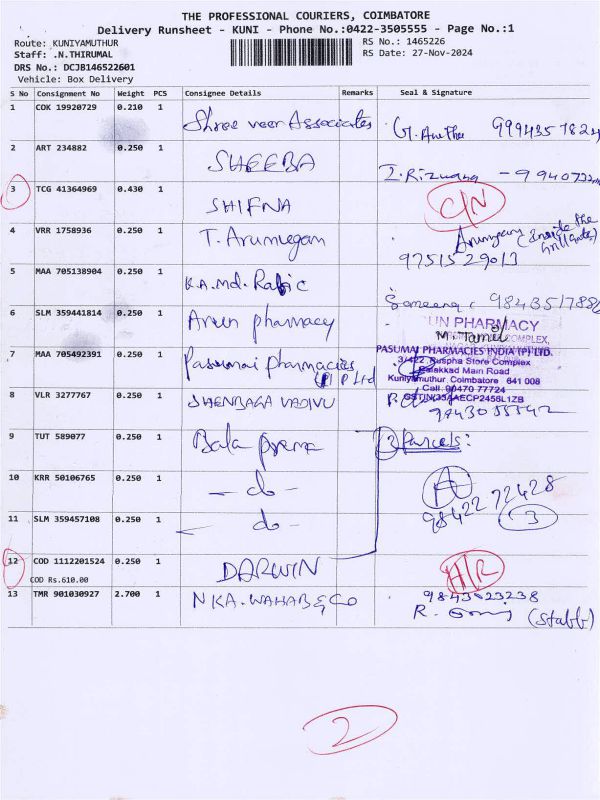 THE PROFESSIONAL COURIERS, COIMBATORE
Delivery Runsheet - KUNI - Phone No.:0422-3505555 - Page No.:1
Route: KUNIYAMUTHUR RS No.: 1465226
Staff: .N.THIRUMAL RS Date: 27-Nov-2024
DRS No.: DCJB146522601
Vehicle: Box Delivery
S No Consignment No Weight PCS Consignee Details Remarks Seal & Signature
1 COK 19920729 0.210 1 Shree veer Associates
2 ART 234882 0.250 1 SHEEBA
3 TCG 41364969 0.430 1 SHIFNA C/N
4 VRR 1758936 0.250 1 T. Arumugam (Inside the
9751529013
5 MAA 705138904 0.250 1 K.A.Md. Rafic
6 SLM 359441814 0.250 1 Arun pharmacy
UN PHARMACY
M. Tamil COMPLEX,
7 MAA 705492391 0.250 1 Pasumai pharmacies
(I) P Ltd
PASUMAI PHARMACIES INDIA (P) LTD.
3/422, Puspha Store Complex
Palakkad Main Road
Kuniyamuthur, Coimbatore 641 008
Cell :90470 77724
GSTIN:33AAECP2456L1ZB
8 VLR 3277767 0.250 1 SHENBAGA VADIVU
9 TUT 589077 0.250 1 Bala prema 3 Parcels:
10 KRR 50106765 0.250 1 - do -
98422 72428
11 SLM 359457108 0.250 1 - do - 3
12 COD 1112201524 0.250 1 DARWIN H/R
COD Rs.610.00
13 TMR 901030927 2.700 1 NKA. WAHAB & CO 9843023238
R. (Staff)
2